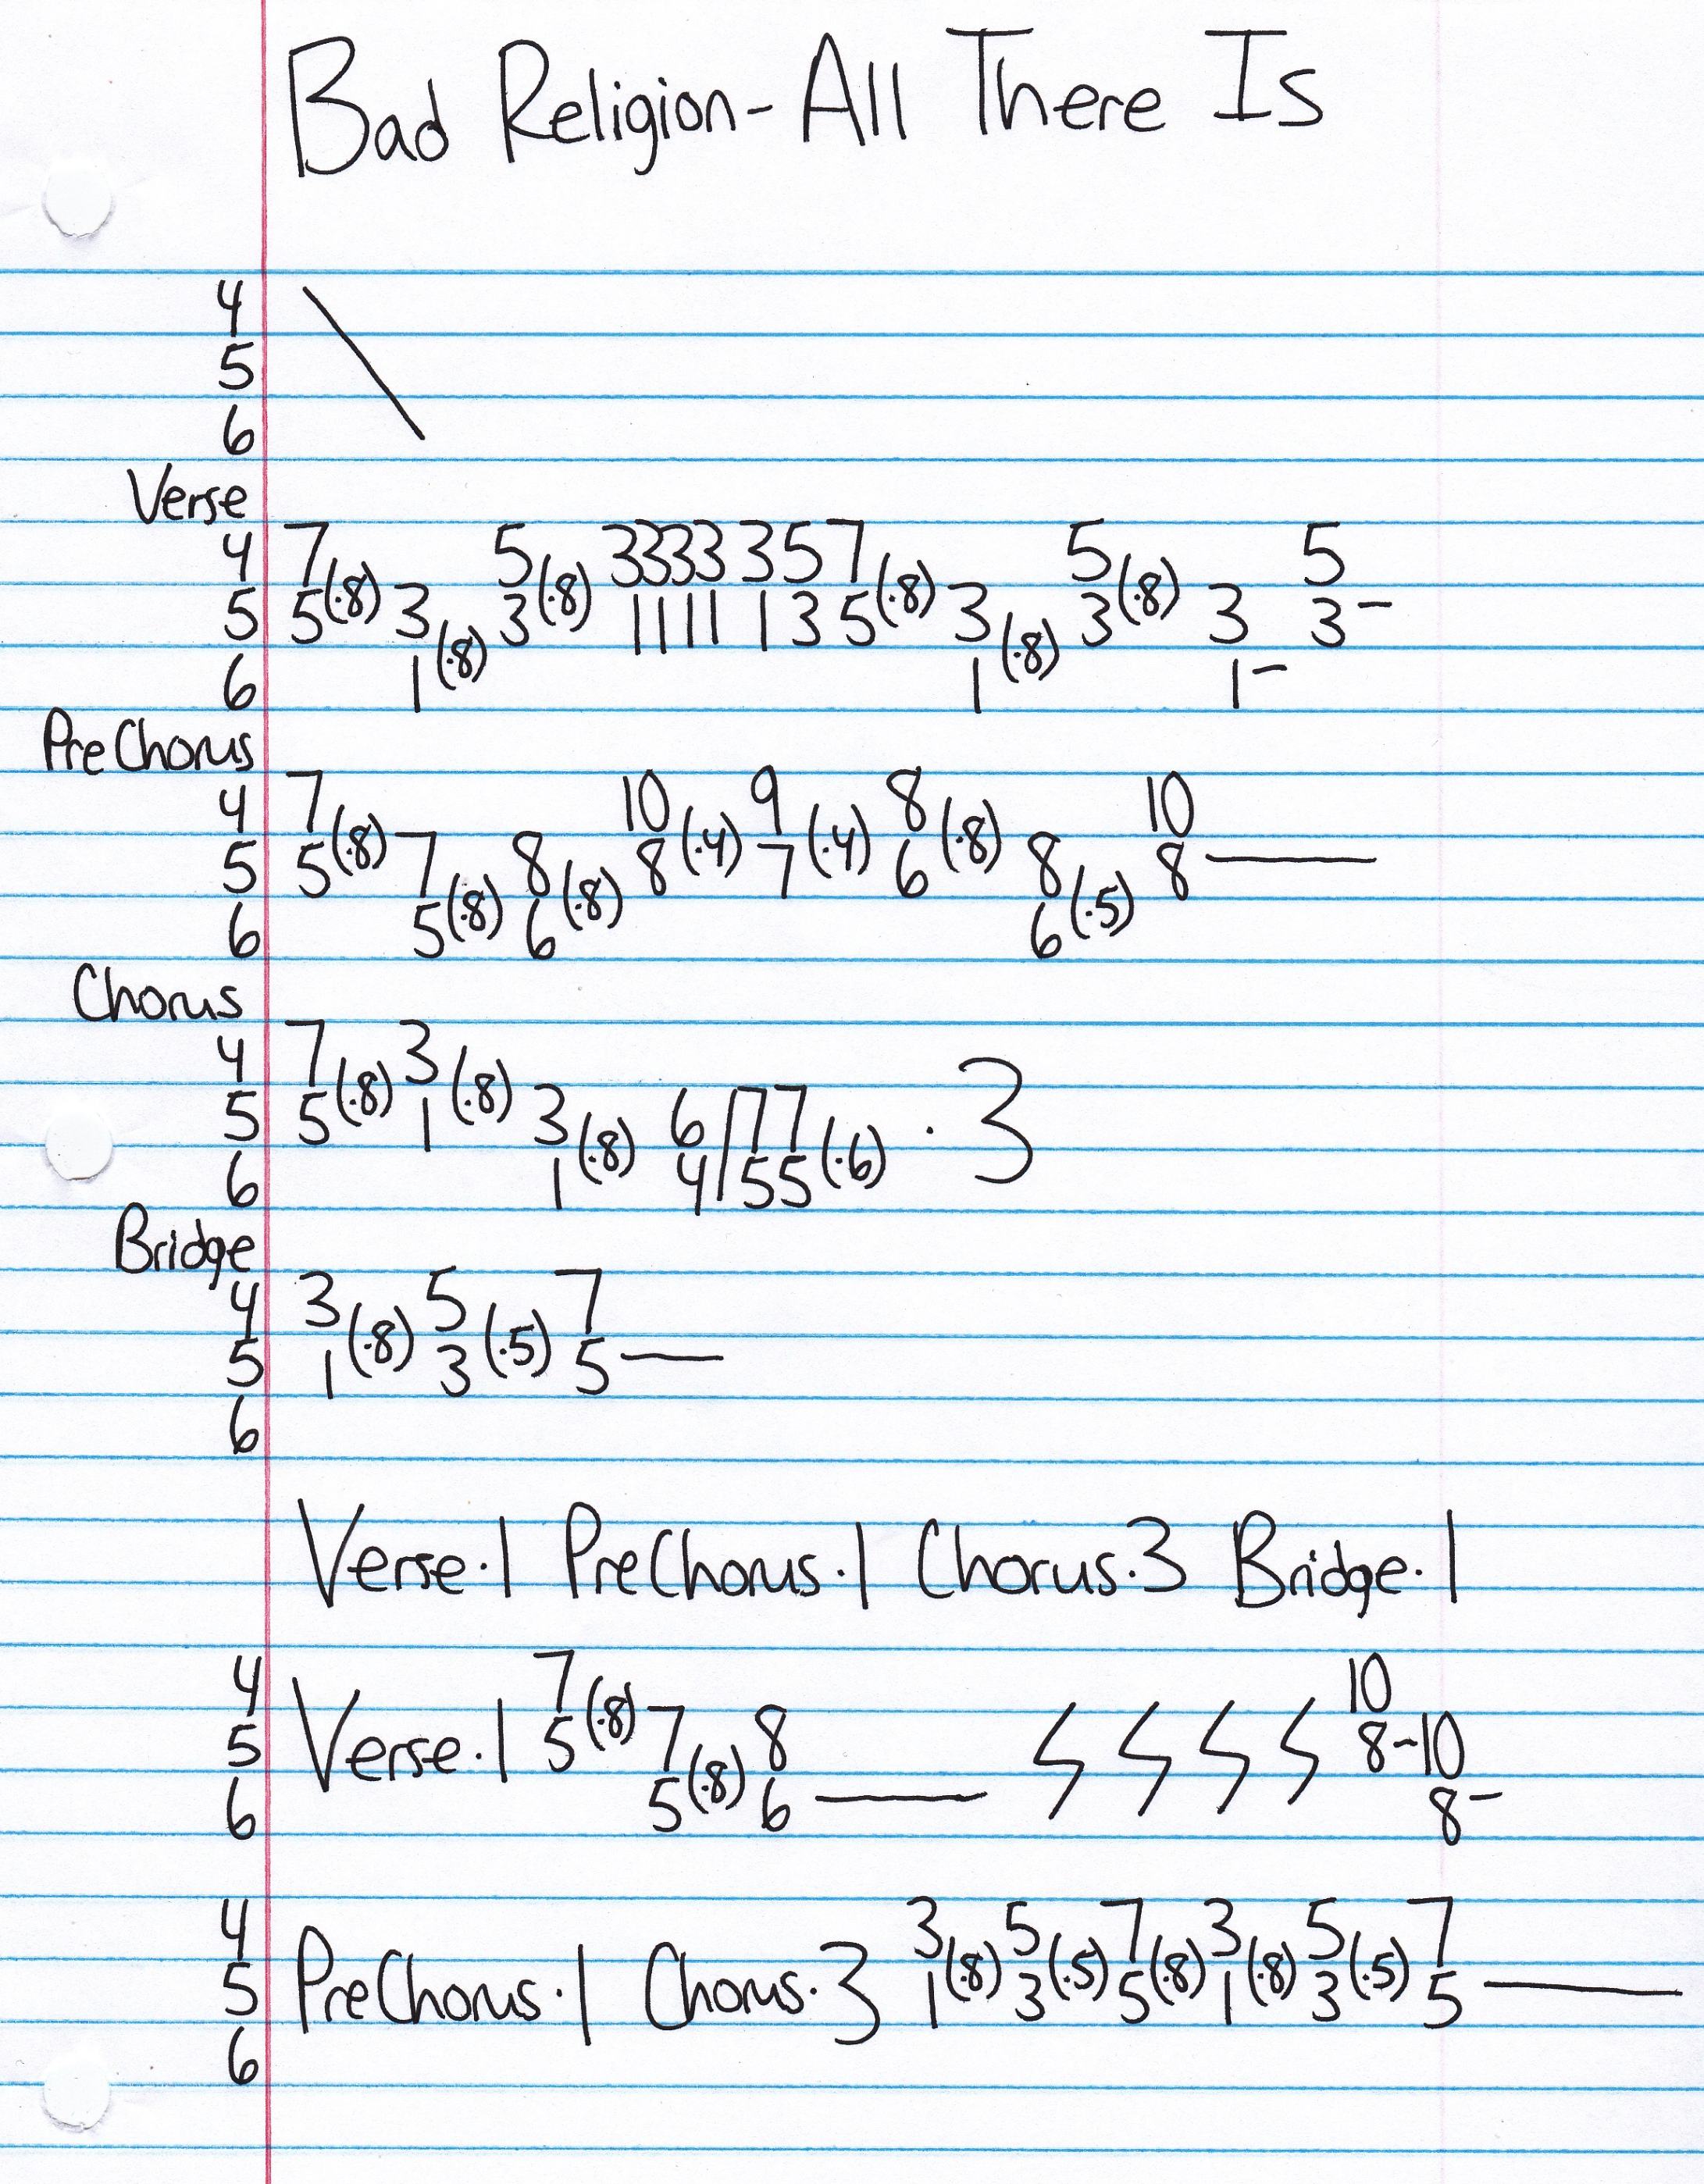 Bad Religion - All There Is
4
5
6
Verse
4 7 5 3333 357 5 5
5 5(·8) 3 3(·8) 1111 135(·8) 3 3(·8) 3 3 –
6 1(·8) 1(·8) 1 –
PreChorus
4 7 10 9 8 10
5 5(·8) 7 8 8(·4) 7(·4) 6(·8) 8 8 —
6 5(·8) 6(·8) 6(·5)
Chorus
4 7 3
5 5(·8) 1(·8) 3 6/77 · 3
6 1(·8) 4/55(·6)
Bridge
4 3 5 7
5 1(·8) 3(·5) 5 —
6
Verse·1 PreChorus·1 Chorus·3 Bridge·1
4 7 10
5 Verse·1 5(·8) 7 8 8-10
6 5(·8) 6 — 8 –
4 3 5 7 3 5 7
5 PreChorus·1 Chorus·3 1(·8) 3(·5) 5(·8) 1(·8) 3(·5) 5 —
6